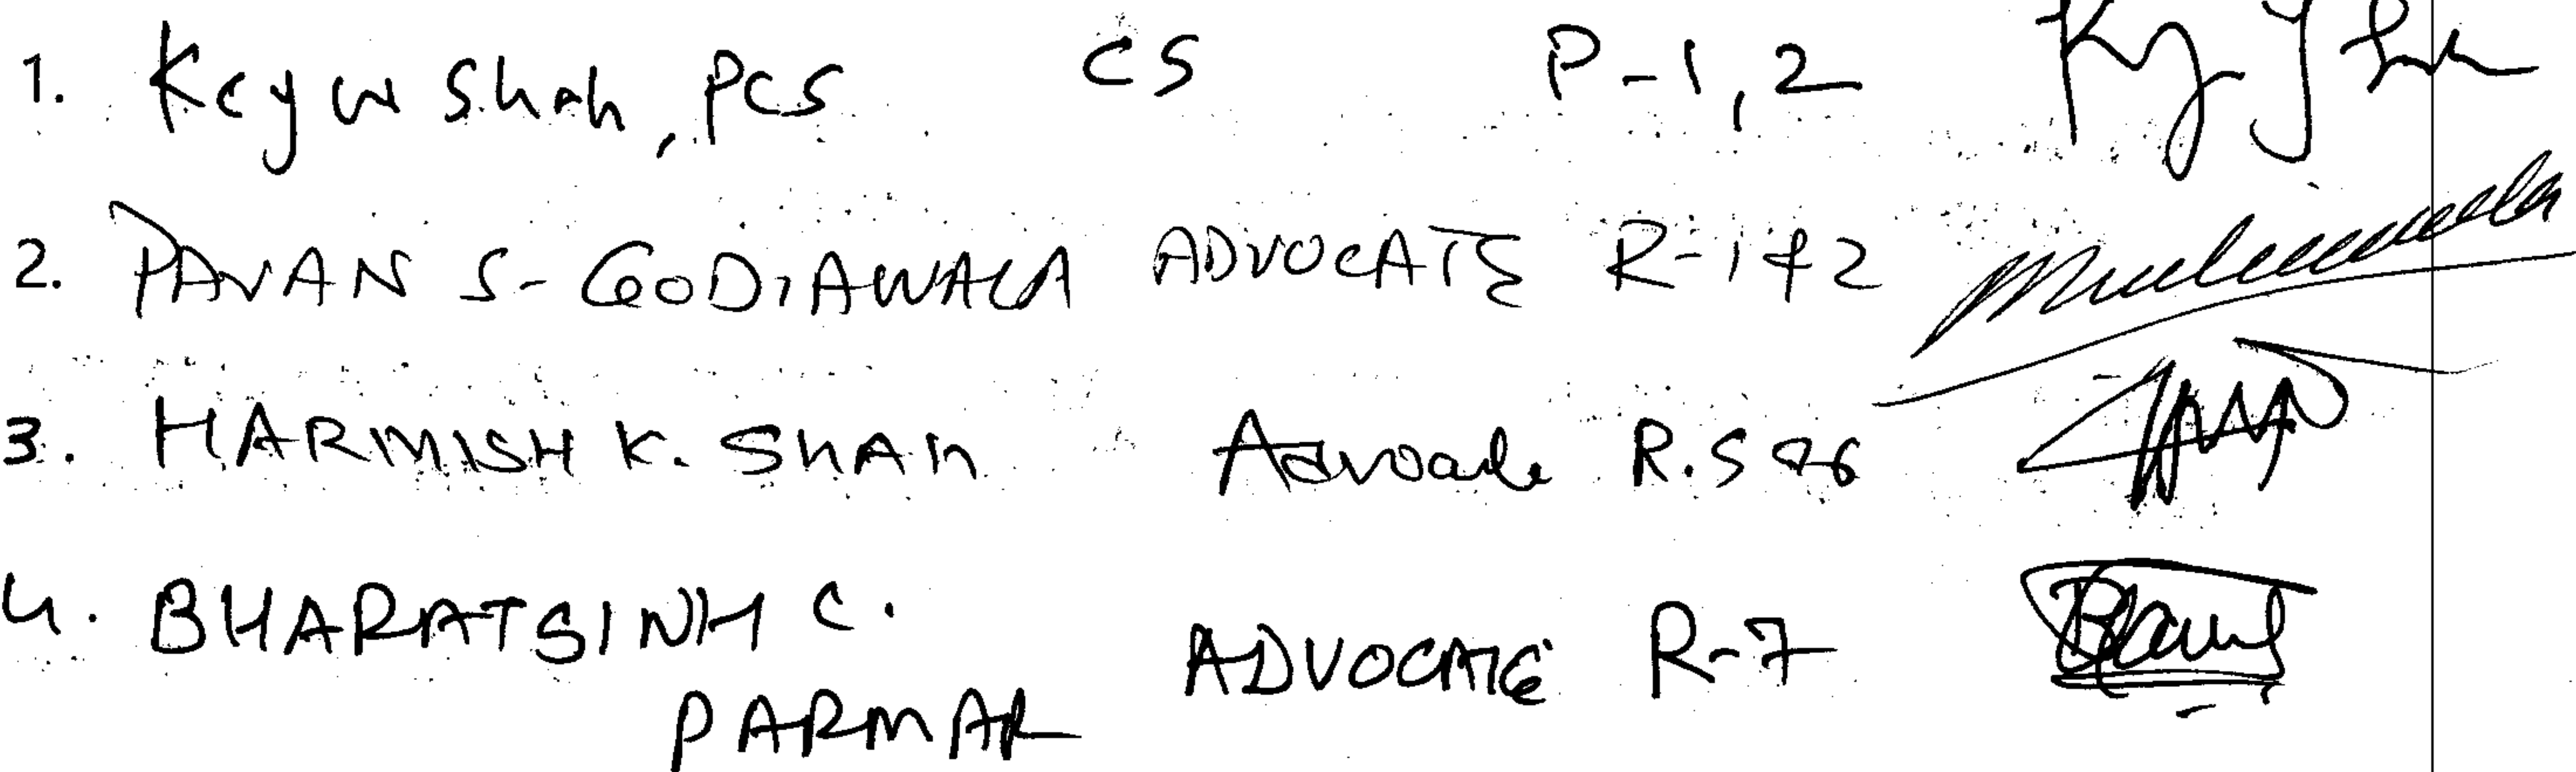 1. Keyur Shah, PCS CS P-1,2
2. PAVAN S- GODIAWALA ADVOCATE R-1&2
3. HARMISH K. SHAH Advocate R.5 &6
4. BHARATSINH C. ADVOCATE R-7
PARMAR